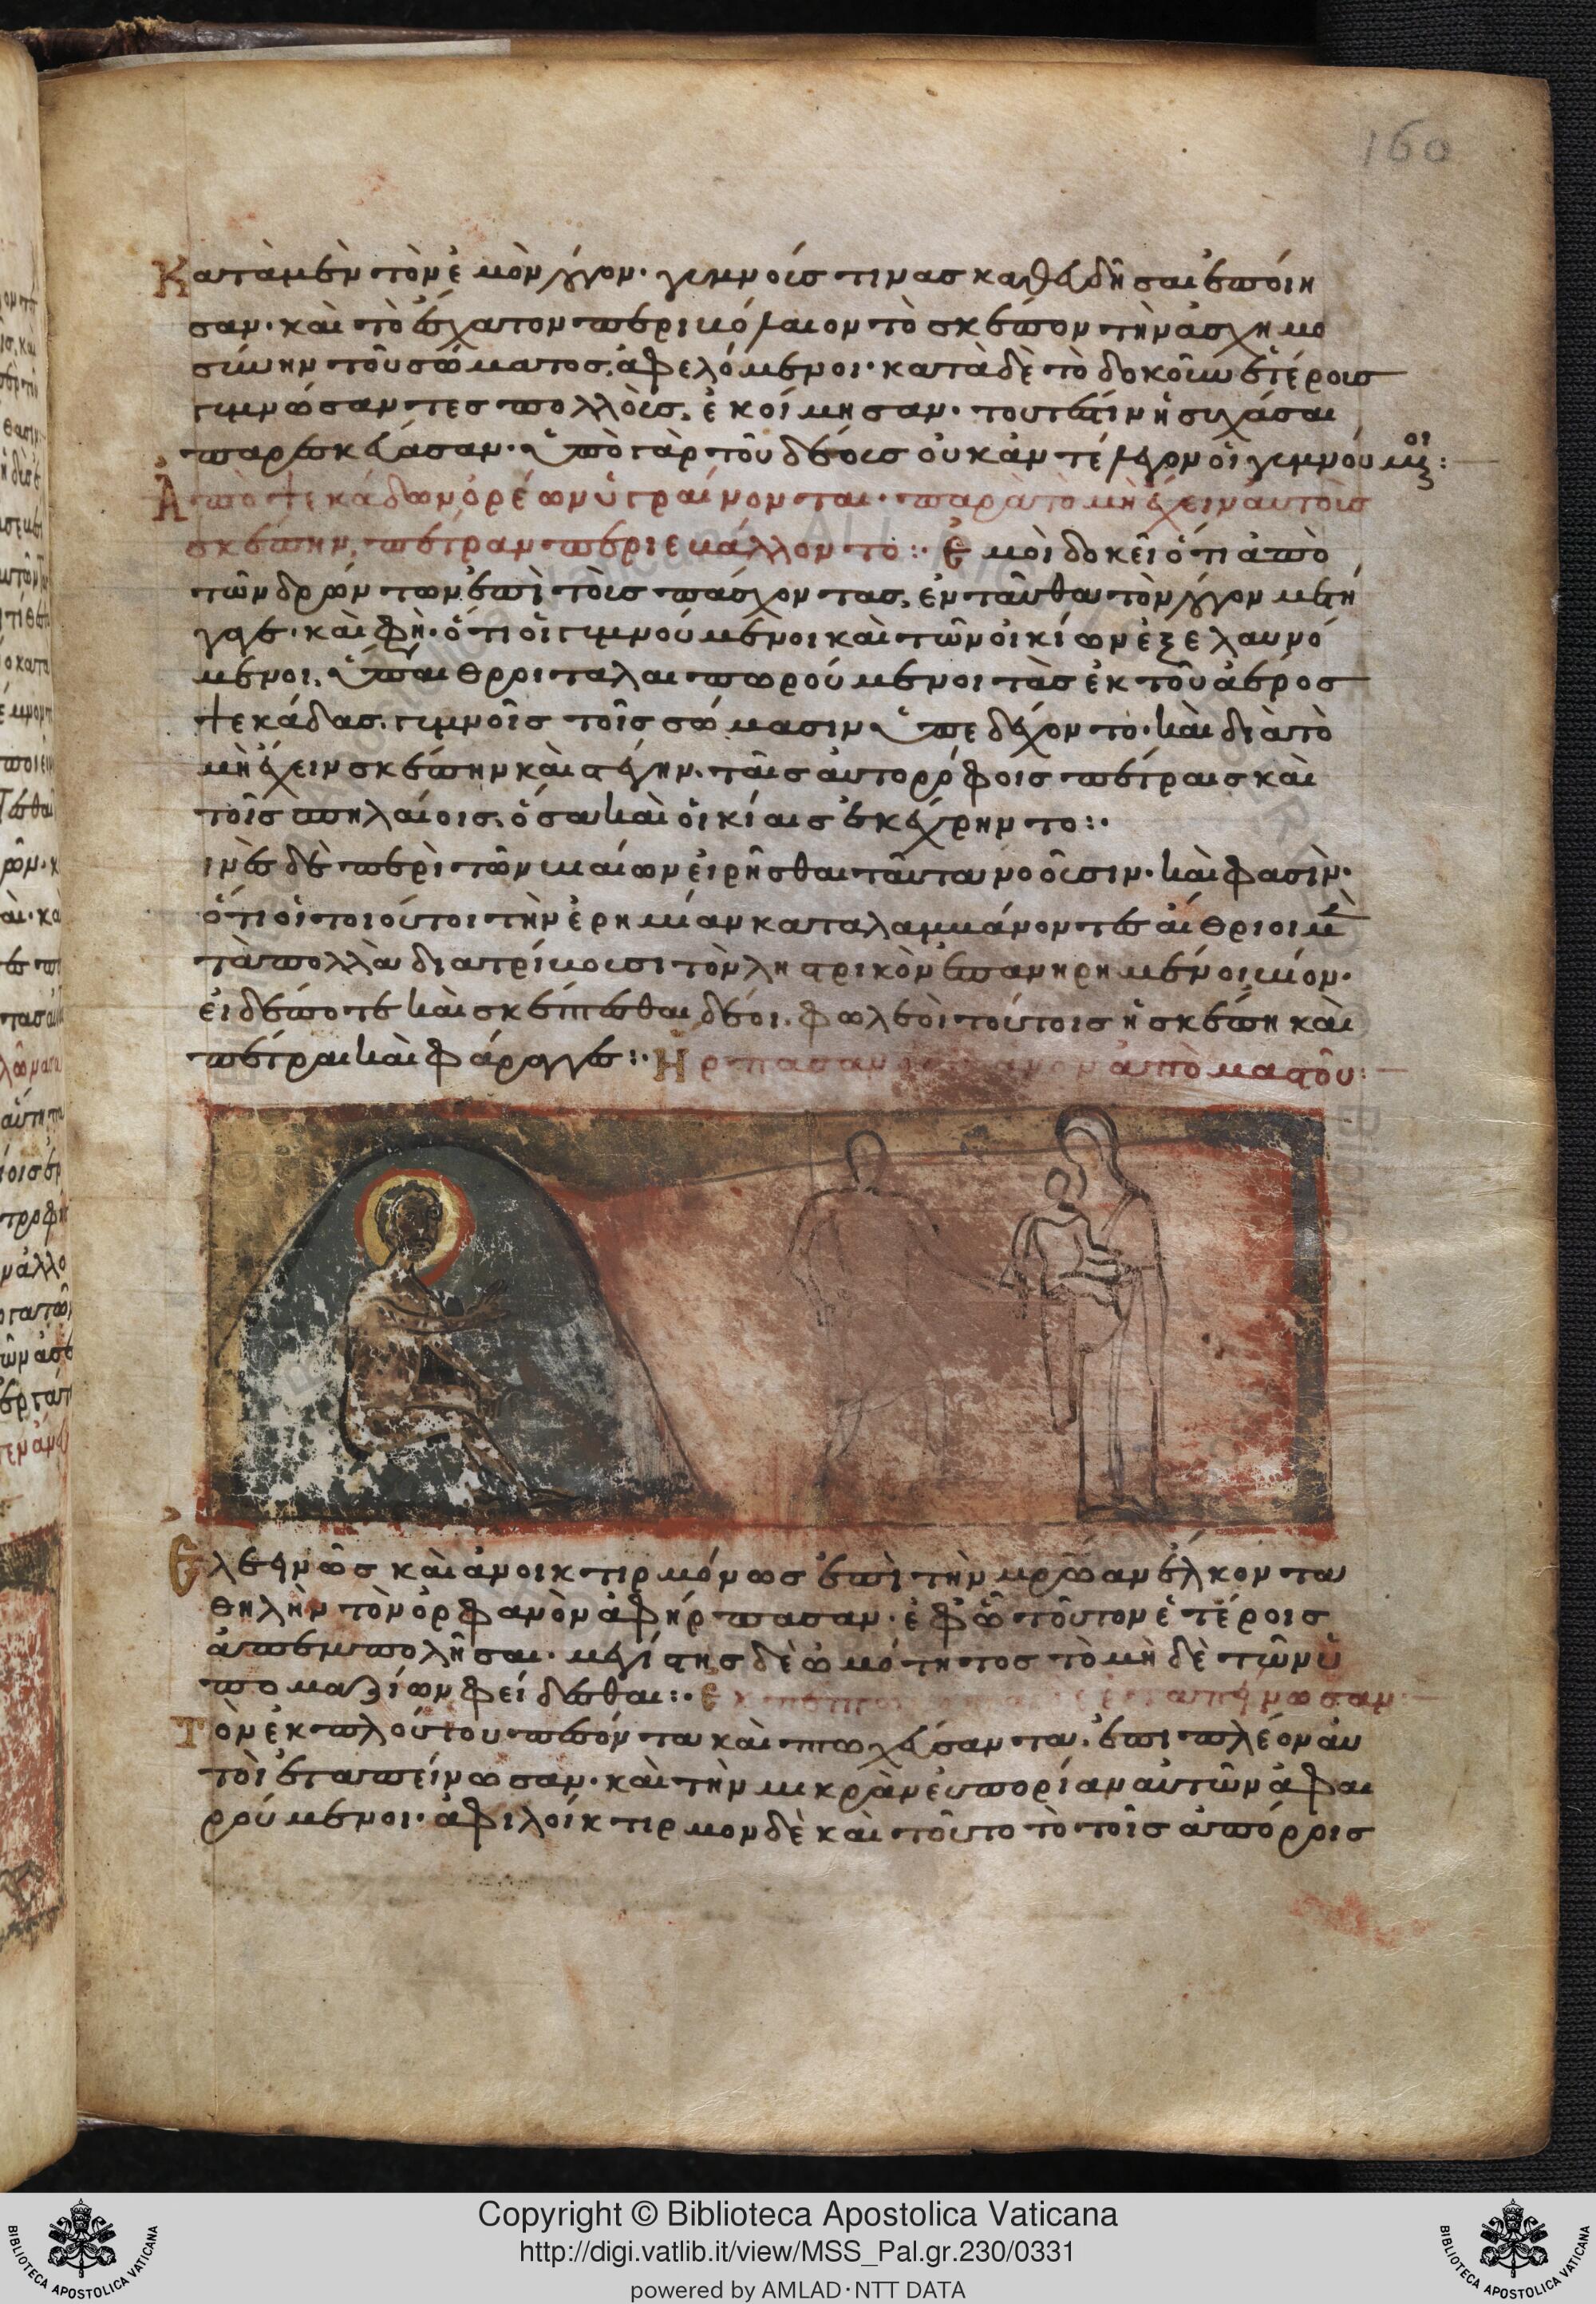 160
Κατὰ μὲν τὸν ἐμὸν λόγον· γυμνούς τινας καθευδῆσαι ἐποίη
σαν· καὶ τὸ ἔσχατον περιβόλαιον τὸ σκέπον τὴν ἀσχημο
σύνην τοῦ σώματος, ἀφελόμενοι· κατὰ δὲ τὸ δοκοῦν ἑτέροις
γυμνώσαντες πολλοὺς, ἐκοίμησαν· τουτέστιν ἡσυχάσαι
παρεσκεύασαν· ὑπὸ γὰρ τοῦ δέους οὐκ ἀντέλεγον οἱ γυμνούμενοι:
Ἀπὸ ψεκάδων ὀρέων ὑγραίνονται· παρὰ τὸ μὴ ἔχειν αὐτοὺς
σκέπην, πέτραν περιεβάλλοντο:· Ἐμοὶ δοκεῖ ὅτι ἀπὸ
τῶν δρώντων ἐπὶ τοὺς πάσχοντας, ἐνταῦθα τὸν λόγον μετή
γαγε· καὶ φησὶ· ὅτι οἱ γυμνούμενοι καὶ τῶν οἰκίων ἐξελαυνό
μενοι, ὕπαιθροι ταλαιπωρούμενοι τὰς ἐκ τοῦ ἀέρος
ψεκάδας, γυμνοῖς τοῖς σώμασιν ὑπεδέχοντο· καὶ διὰ τὸ
μὴ ἔχειν σκέπην καὶ στέγην, ταῖς αὐτορόφοις πέτραις καὶ
τοῖς σπηλαίοις, ὅσα καὶ οἰκίαις ἐκέχρηντο:·
τινὲς δὲ περὶ τῶν βιαίων εἰρῆσθαι ταῦτα νοοῦσιν· καὶ φασὶν·
ὅτι οἱ τοιοῦτοι τὴν ἐρημίαν καταλαμβάνοντες αἴθριοι μὲν
τὰ πολλὰ διατρίβουσι τὸν ληστρικὸν ἐπανηρημένοι βίον·
εἰ δέ ποτε καὶ σκέπεσθαι δέοι, φωλεοὶ τούτοις ἡ σκέπη καὶ
πέτραι καὶ φάραγγες:· Ἥρπασαν ὀρφανὸν ἀπὸ μαστοῦ:
Ἐλεεινῶς καὶ ἀνοικτιρμόνως ἐπὶ τὴν μητρῴαν ἕλκοντα
θηλὴν τὸν ὀρφανὸν ἀφήρπασαν· ἐφ' ᾧ τοῦτον ἑτέροις
ἀπεμπολῆσαι· μεγίστης δὲ ὠμότητος τὸ μὴ δὲ τῶν ὑ
πομαζίων φείδεσθαι:· ἐκπεπτωκότα δὲ ἐταπείνωσαν·
Τὸν ἐκ πλούτου πεσόντα καὶ πτωχεύσαντα, ἐπὶ πλέον αυ
τοὶ ἐταπείνωσαν· καὶ τὴν μικρὰν εὐπορίαν αὐτῶν ἀφαι
ρούμενοι· ἀφιλοίκτιρμον δὲ καὶ τοῦτο τὸ τοῖς ἀπόροις
Copyright © Biblioteca Apostolica Vaticana
http://digi.vatlib.it/view/MSS_Pal.gr.230/0331
powered by AMLAD·NTT DATA
BIBLIOTECA APOSTOLICA VATICANA
BIBLIOTECA APOSTOLICA VATICANA